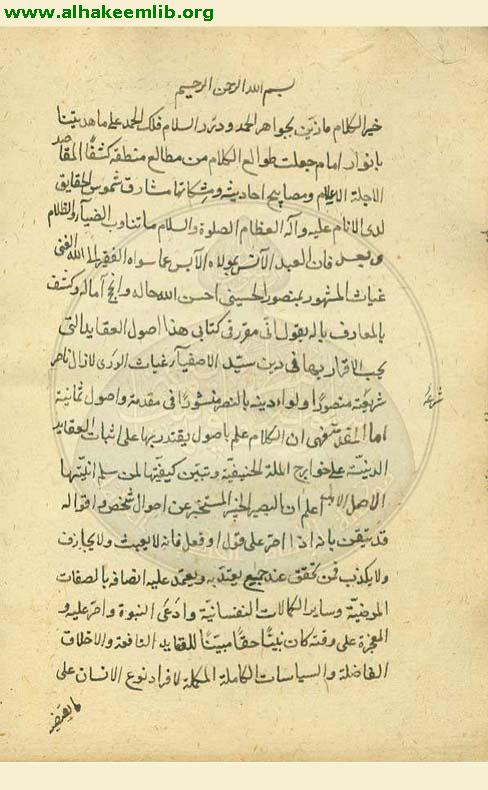 www.alhakeemlib.org
بسم الله الرحمن الرحيم
خير الكلام ما زين بجواهر الحمد ودرر السلام فلك الحمد على ما هديتنا
بانوار امام جعلت طوالع الكلام من مطالع منطقه كشفًا لمقاصد
الاجلة الاعلام ومصابيح احاديثه ومشكاتها مشارق شموس الحقايق
لدى الانام عليه وآله العظام الصلوة والسلام ما تناوب الضياء والظلام
وبعد فان العبد الآنس بمولاه الآيس عما سواه الفقير الى الله الغنى
غياث المشهور بمنصور الحسينى احسن الله حاله وانجح آماله وكشف
بالمعارف باله يقول انى مقرر فى كتابى هذا اصول العقايد التى
يجب الاقرار بها فى دين سيد الاصفياء غياث الورى لا زال ناصر
شرعة
شريعته منصورًا ولواء دينه بالنصر منشورًا فى مقدمة واصول ثمانية
اما المقدمة فهى ان الكلام علم باصول يقتدر بها على اثبات العقايد
الدينية على خوارج الملة الحنيفية وتبين كيفيتها لمن سلم انيتها
الاصل اعلم ان البصير الخبير المستخبر عن احوال شخص واقواله
قد يتيقن بانه اذا اصر على قول او فعل فانه لا يعبث ولا يجازف
ولا يكذب فمن تحقق عند جميع يعتد به ويعتمد عليه اتصافه بالصفات
المرضية وساير الكمالات النفسانية وادعى النبوة واصر عليه و
المعجزة على وفقه كان نبيًا حقًا مبينًا للعقايد النافعة والاخلاق
الفاضلة والسياسات الكاملة المكملة لافراد نوع الانسان على
ما يقتضيه